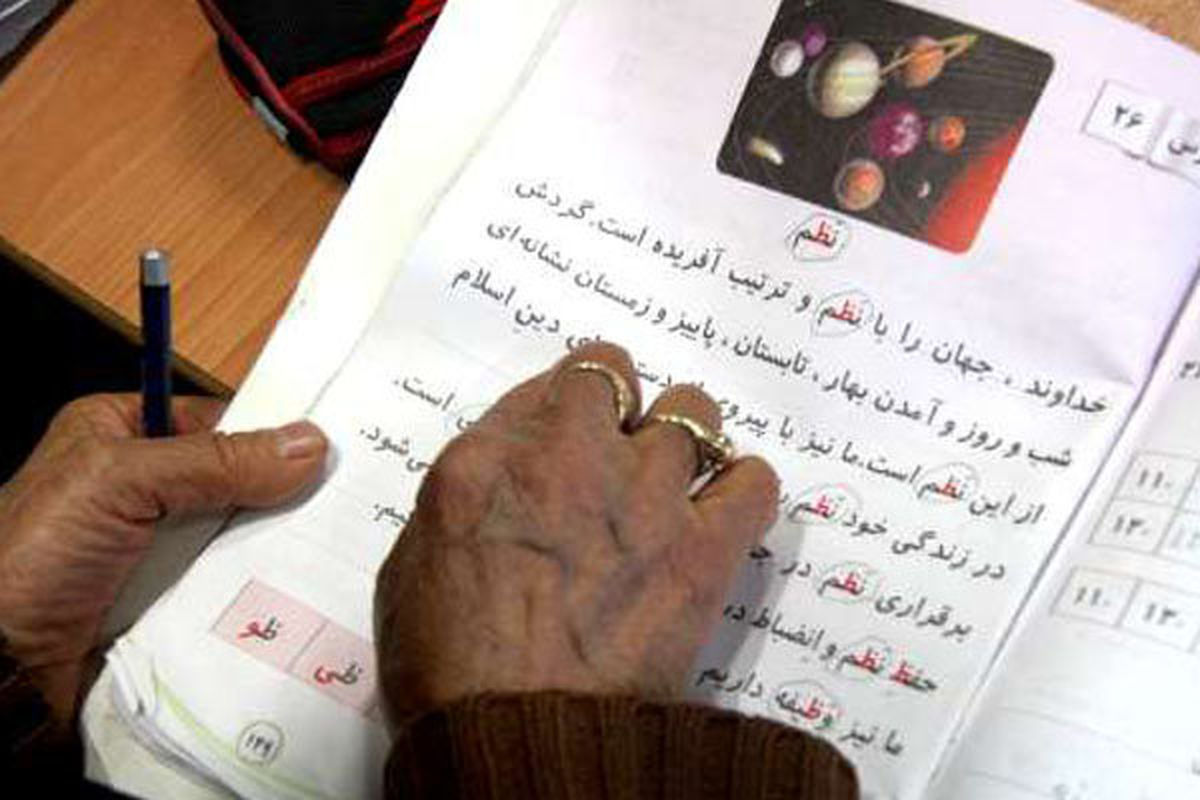 ۲۶
نظم
خداوند، جهان را با نظم و ترتیب آفریده است.گردش
شب و روز و آمدن بهار، تابستان، پاییز و زمستان نشانه‌ای
از این نظم است.ما نیز با پیروی دین اسلام
در زندگی خود نظم است.
برقراری نظم در می‌شود.
حفظ نظم و انضباط در
ما نیز وظیفه داریم
ظی ظو
۱۴۹
۱۱۰
۱۳۰
۱۳۰ ۱۱۰